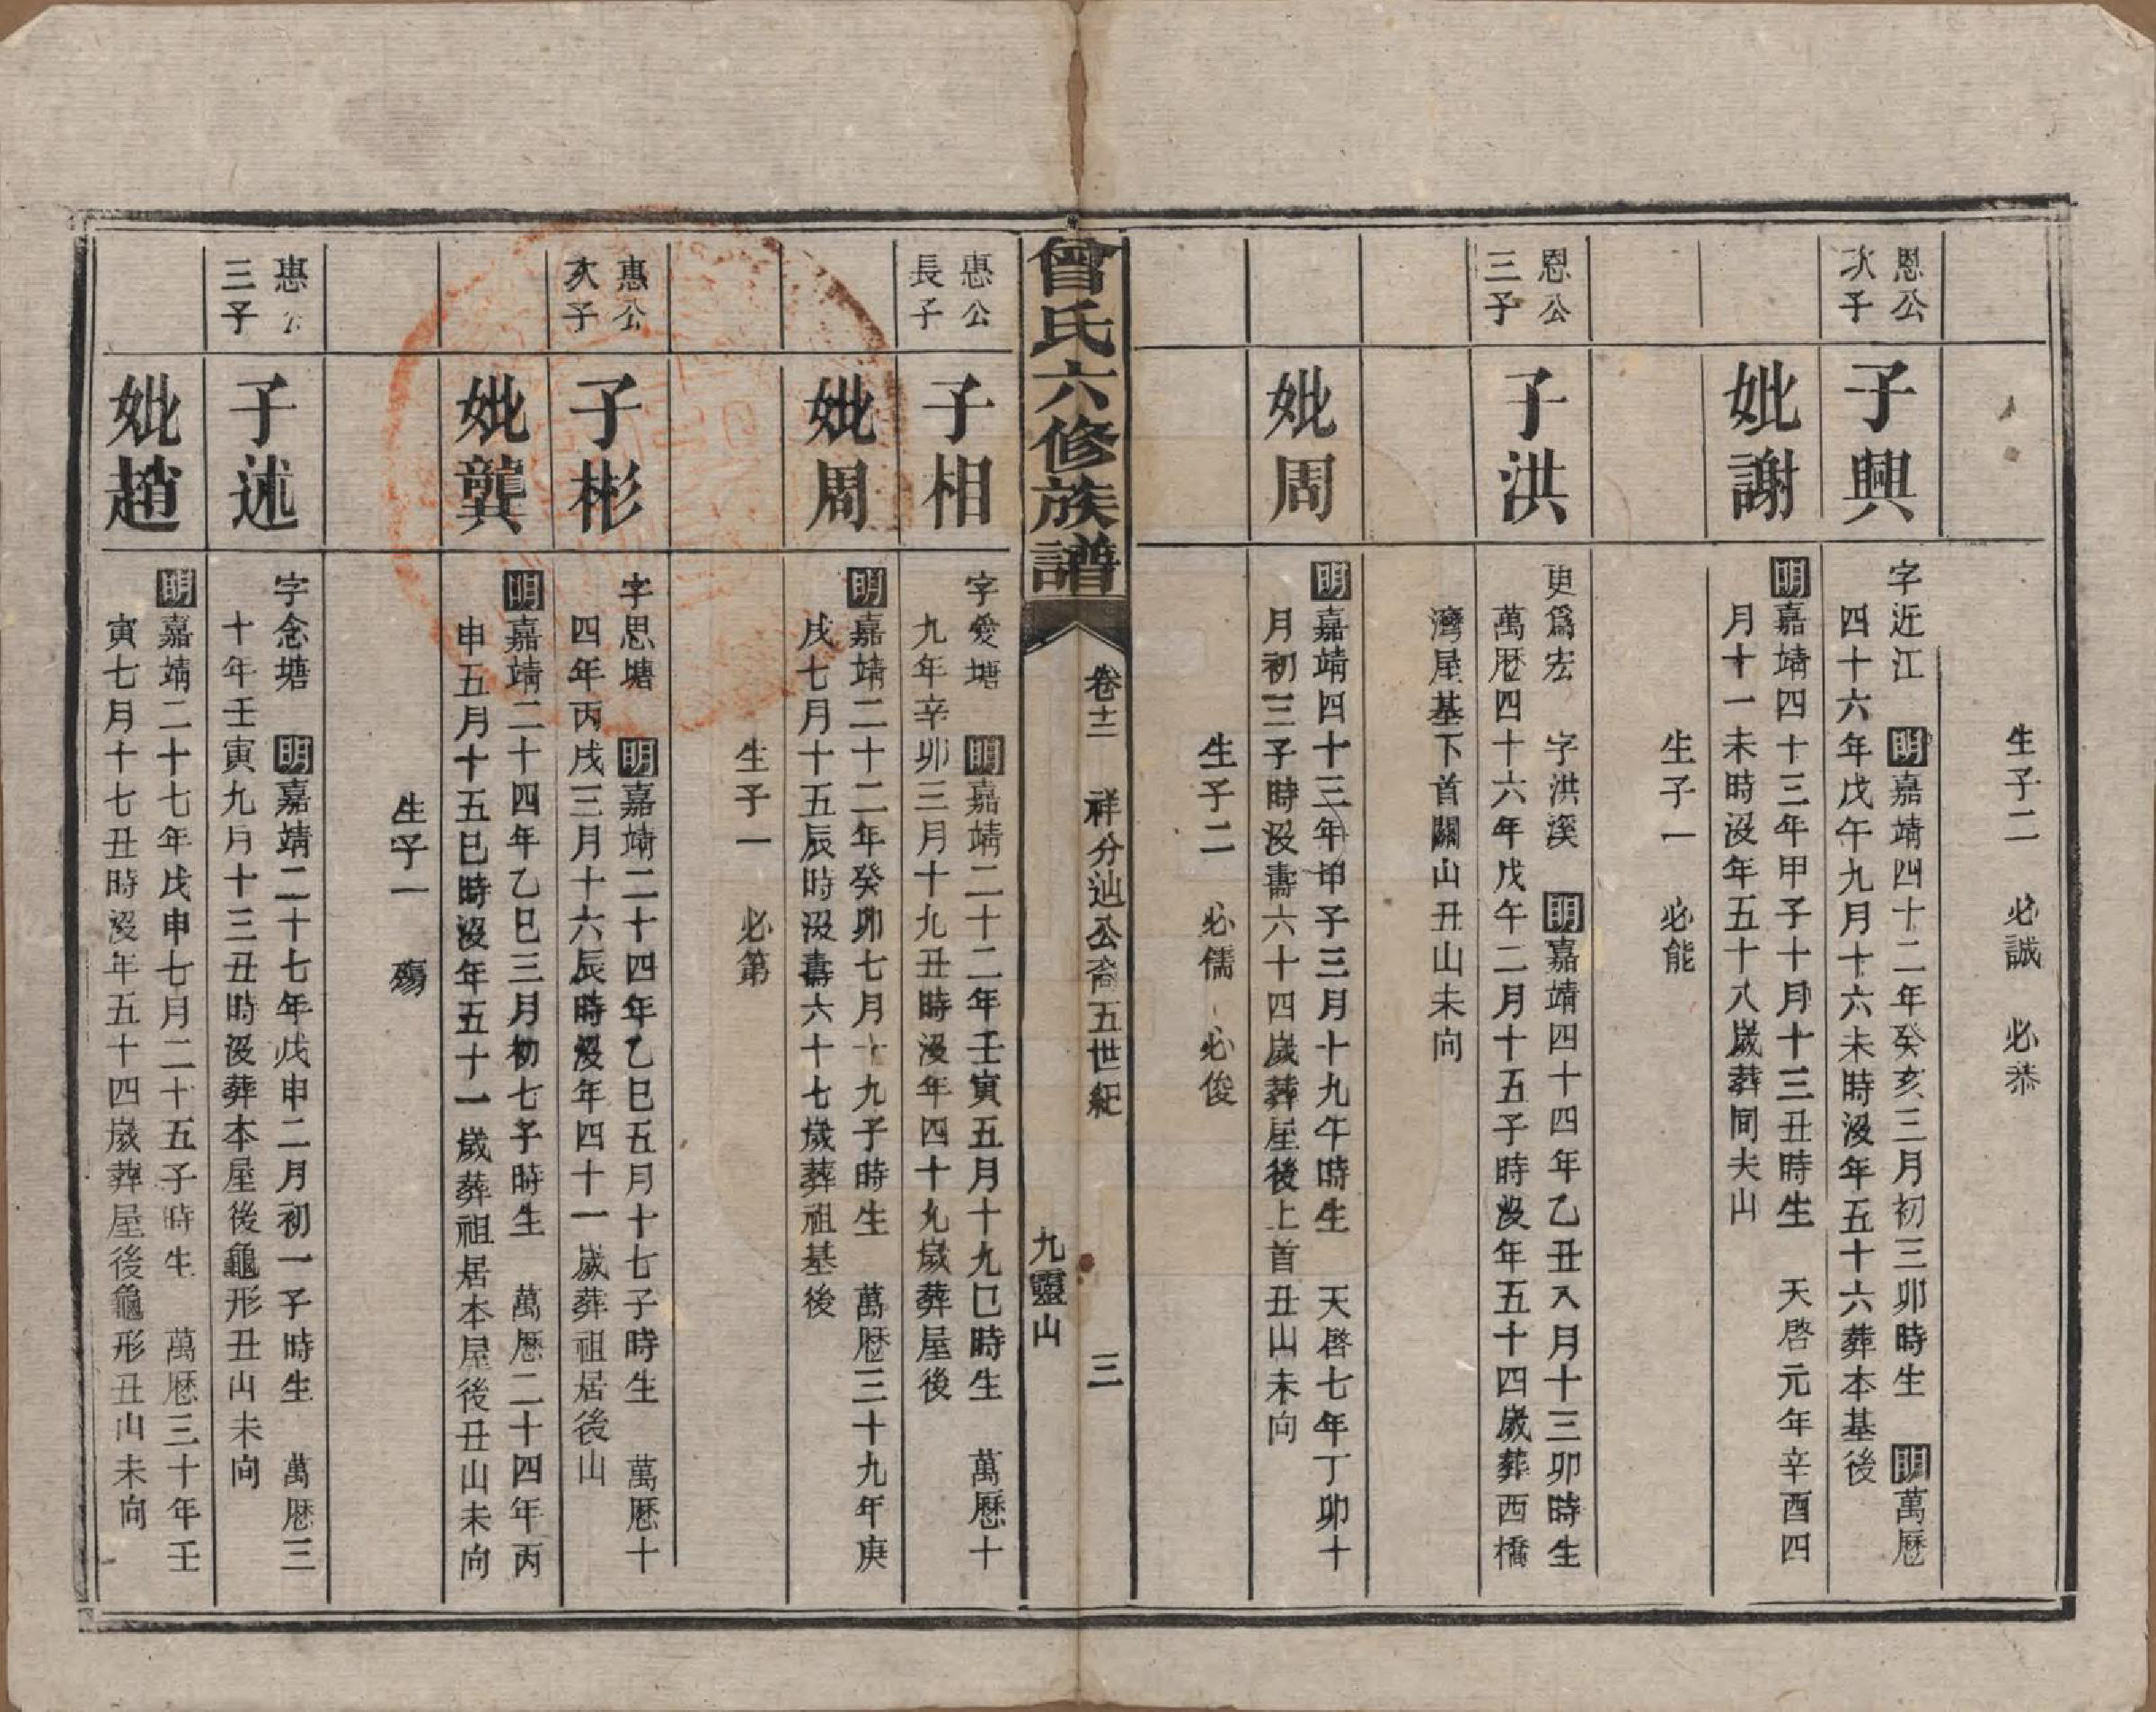 生子二　必誠　必恭
恩公
次子
子興
字近江　明嘉靖四十二年癸亥三月初三卯時生　明萬歷
四十六年戊午九月十六未時沒年五十六葬本基後
妣謝
明嘉靖四十三年甲子十月十三丑時生　天啓元年辛酉四
月十一未時沒年五十八歲葬同夫山
生子一　必能
恩公
三子
子洪
更爲宏　字洪溪　明嘉靖四十四年乙丑八月十三卯時生
萬歷四十六年戊午二月十五子時沒年五十四歲葬西橋
灣屋基下首關山丑山未向
妣周
明嘉靖四十三年甲子三月十九午時生　天啓七年丁卯十
月初三子時沒壽六十四歲葬屋後上首丑山未向
生子二　必儒　必俊
曾氏六修族譜
卷十二　祥分辿公裔五世紀
三
九靈山
惠公
長子
子相
字愛塘　明嘉靖二十二年壬寅五月十九巳時生　萬歷十
九年辛卯三月十九丑時沒年四十九歲葬屋後
妣周
明嘉靖二十二年癸卯七月十九子時生　萬歷三十九年庚
戌七月十五辰時沒壽六十七歲葬祖基後
生子一　必第
惠公
次子
子彬
字思塘　明嘉靖二十四年乙巳五月十七子時生　萬歷十
四年丙戌三月十六辰時沒年四十一歲葬祖居後山
妣龔
明嘉靖二十四年乙巳三月初七子時生　萬歷二十四年丙
申五月十五巳時沒年五十一歲葬祖居本屋後丑山未向
生子一　殤
惠公
三子
子述
字念塘　明嘉靖二十七年戊申二月初一子時生　萬歷三
十年壬寅九月十三丑時沒葬本屋後龜形丑山未向
妣趙
明嘉靖二十七年戊申七月二十五子時生　萬歷三十年壬
寅七月十七丑時沒年五十四歲葬屋後龜形丑山未向